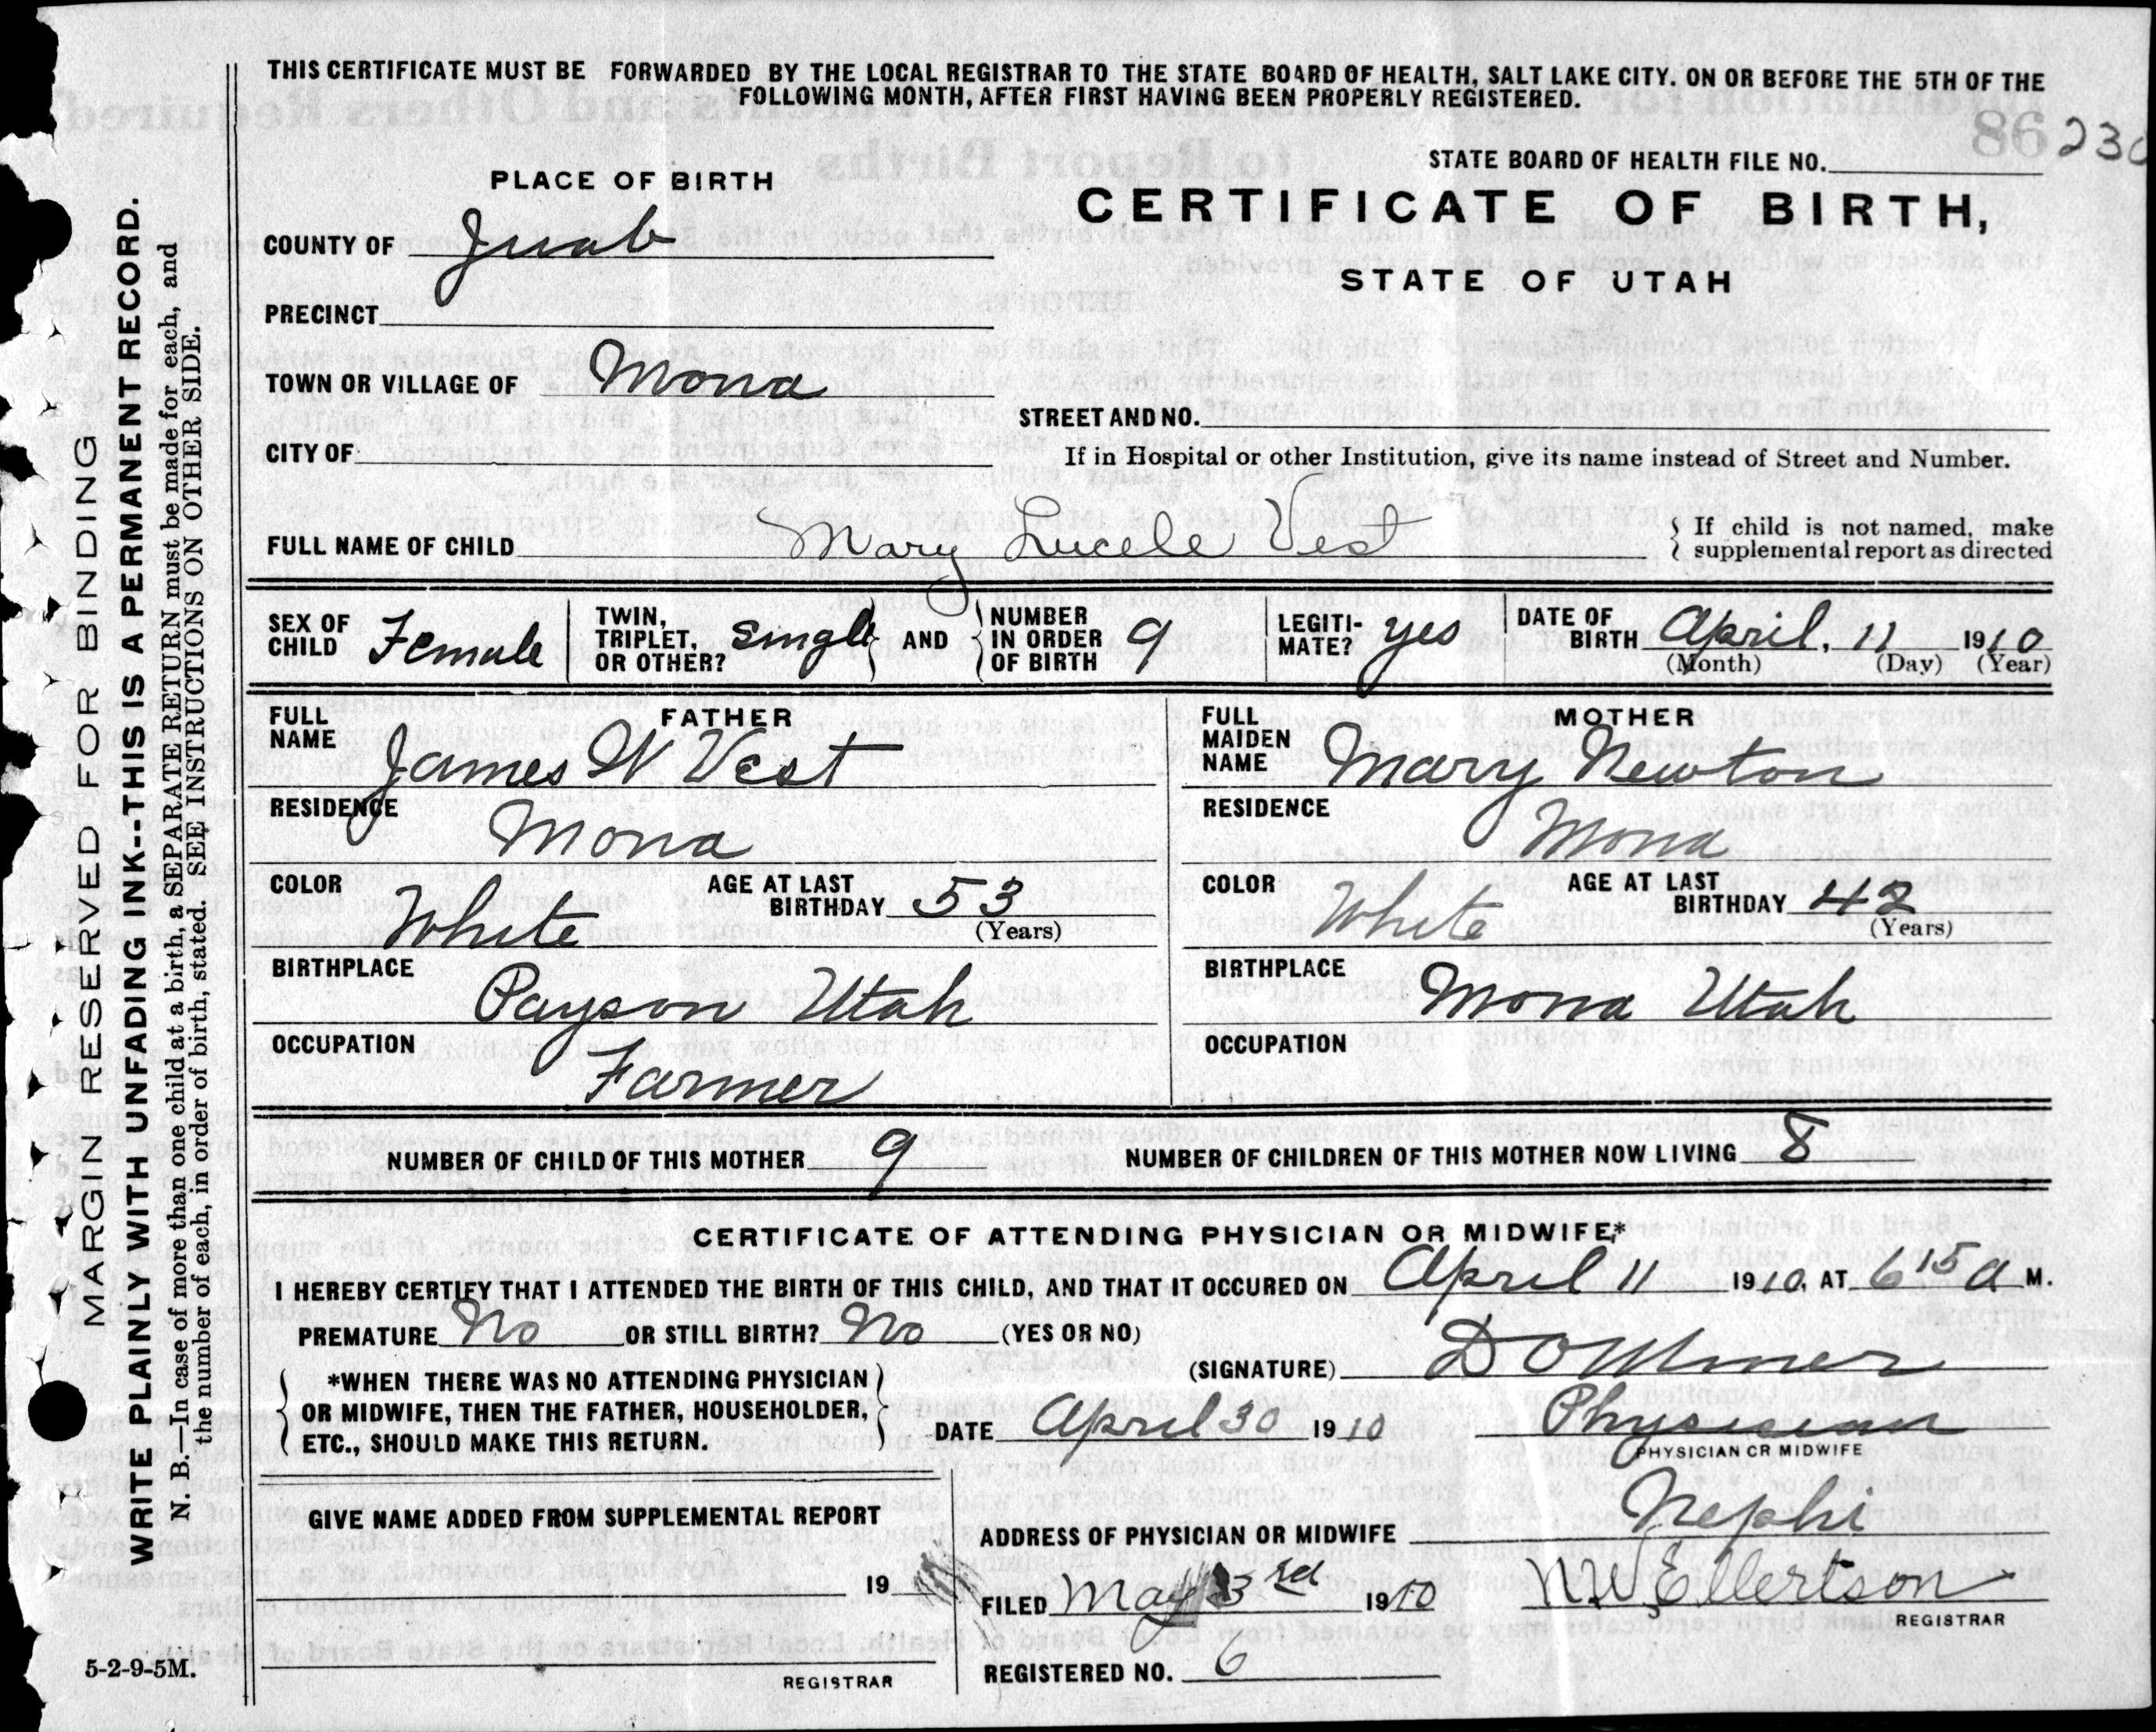 THIS CERTIFICATE MUST BE FORWARDED BY THE LOCAL REGISTRAR TO THE STATE BOARD OF HEALTH, SALT LAKE CITY. ON OR BEFORE THE 5TH OF THE
FOLLOWING MONTH, AFTER FIRST HAVING BEEN PROPERLY REGISTERED.
STATE BOARD OF HEALTH FILE NO. 86 230
PLACE OF BIRTH
CERTIFICATE OF BIRTH,
STATE OF UTAH
COUNTY OF Juab
PRECINCT
TOWN OR VILLAGE OF Mona
STREET AND NO.
CITY OF
If in Hospital or other Institution, give its name instead of Street and Number.
FULL NAME OF CHILD Mary Lucele Vest
If child is not named, make
supplemental report as directed
SEX OF CHILD Female
TWIN, TRIPLET, OR OTHER? Single
AND
NUMBER IN ORDER OF BIRTH 9
LEGITI-MATE? yes
DATE OF BIRTH April, 11 1910
(Month) (Day) (Year)
FATHER
FULL NAME James W Vest
RESIDENCE Mona
COLOR White
AGE AT LAST BIRTHDAY 53 (Years)
BIRTHPLACE Payson Utah
OCCUPATION Farmer
MOTHER
FULL MAIDEN NAME Mary Newton
RESIDENCE Mona
COLOR White
AGE AT LAST BIRTHDAY 42 (Years)
BIRTHPLACE Mona Utah
OCCUPATION
NUMBER OF CHILD OF THIS MOTHER 9
NUMBER OF CHILDREN OF THIS MOTHER NOW LIVING 8
CERTIFICATE OF ATTENDING PHYSICIAN OR MIDWIFE*
I HEREBY CERTIFY THAT I ATTENDED THE BIRTH OF THIS CHILD, AND THAT IT OCCURED ON April 11 1910, AT 6 15 a M.
PREMATURE No OR STILL BIRTH? No (YES OR NO)
*WHEN THERE WAS NO ATTENDING PHYSICIAN
OR MIDWIFE, THEN THE FATHER, HOUSEHOLDER,
ETC., SHOULD MAKE THIS RETURN.
(SIGNATURE)
DATE April 30 1910
Physician
PHYSICIAN OR MIDWIFE
GIVE NAME ADDED FROM SUPPLEMENTAL REPORT
19
REGISTRAR
ADDRESS OF PHYSICIAN OR MIDWIFE Nephi
FILED May 3rd 1910
N W Ellertson
REGISTRAR
REGISTERED NO. 6
5-2-9-5M.
MARGIN RESERVED FOR BINDING
WRITE PLAINLY WITH UNFADING INK--THIS IS A PERMANENT RECORD.
N. B.—In case of more than one child at a birth, a SEPARATE RETURN must be made for each, and
the number of each, in order of birth, stated. SEE INSTRUCTIONS ON OTHER SIDE.